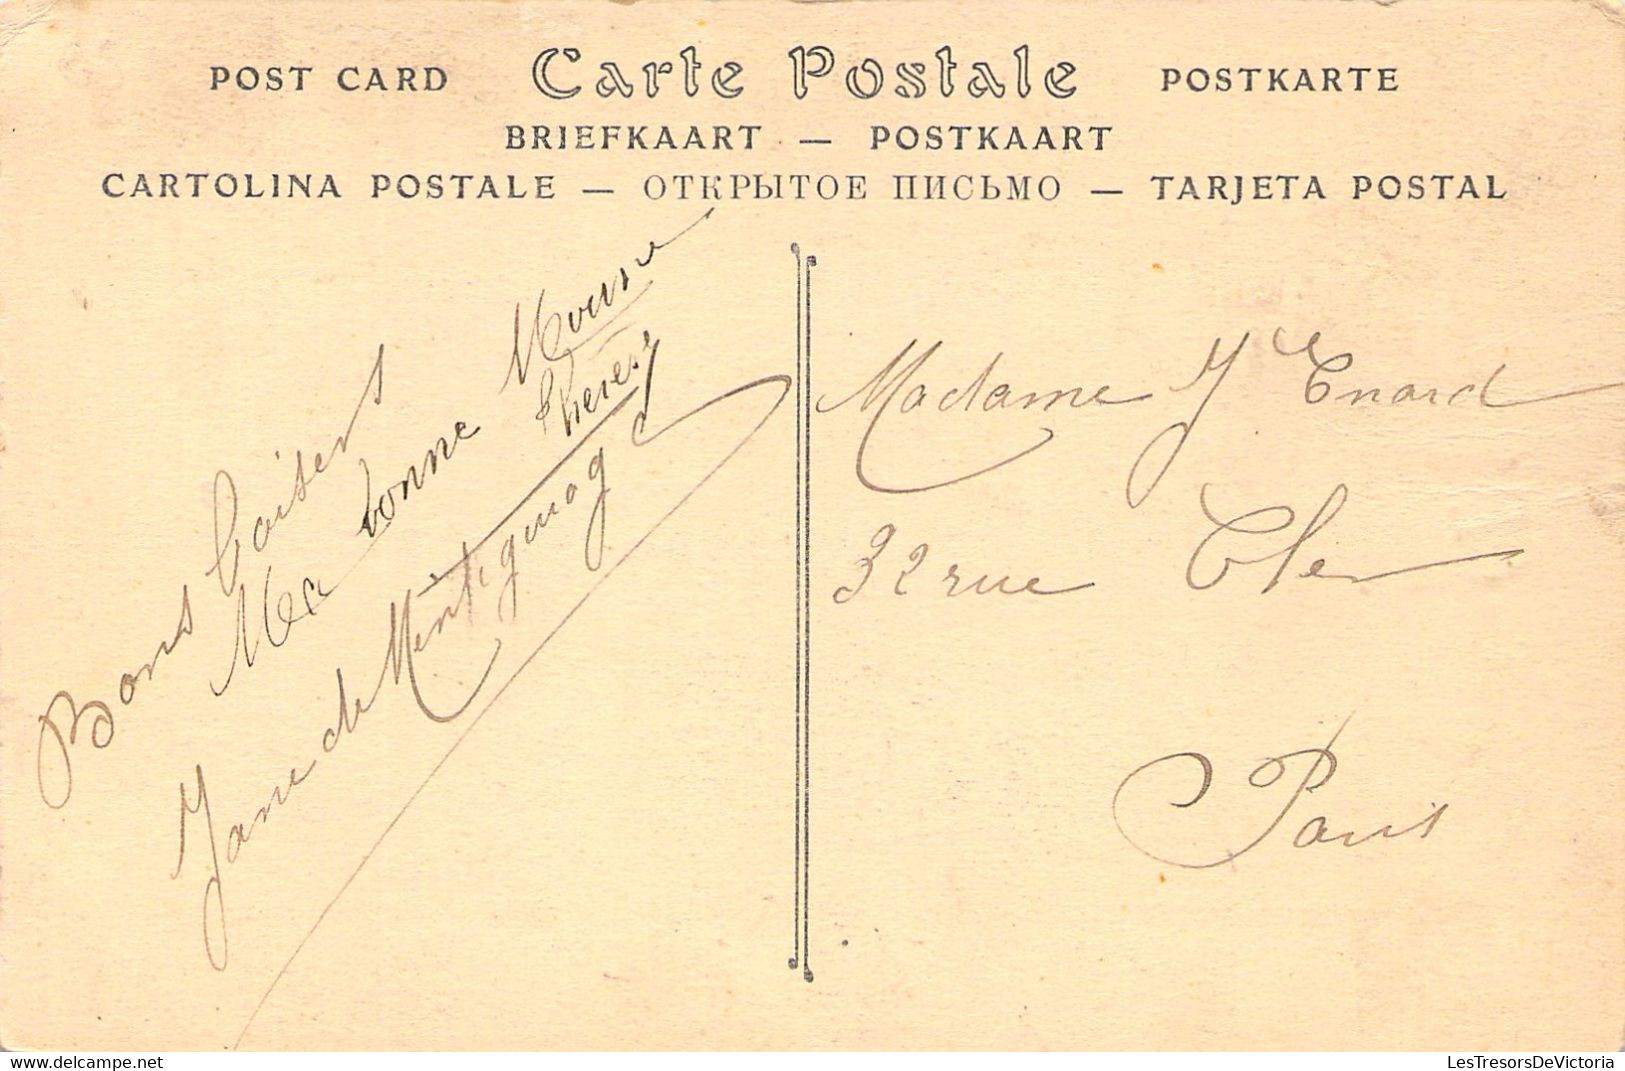 POST CARD Carte Postale POSTKARTE
BRIEFKAART — POSTKAART
CARTOLINA POSTALE — ОТКРЫТОЕ ПИСЬМО — TARJETA POSTAL
Bons baisers
Ma bonne
Jane de
Madame J Enard
32 rue Cler
Paris
LesTresorsDeVictoria